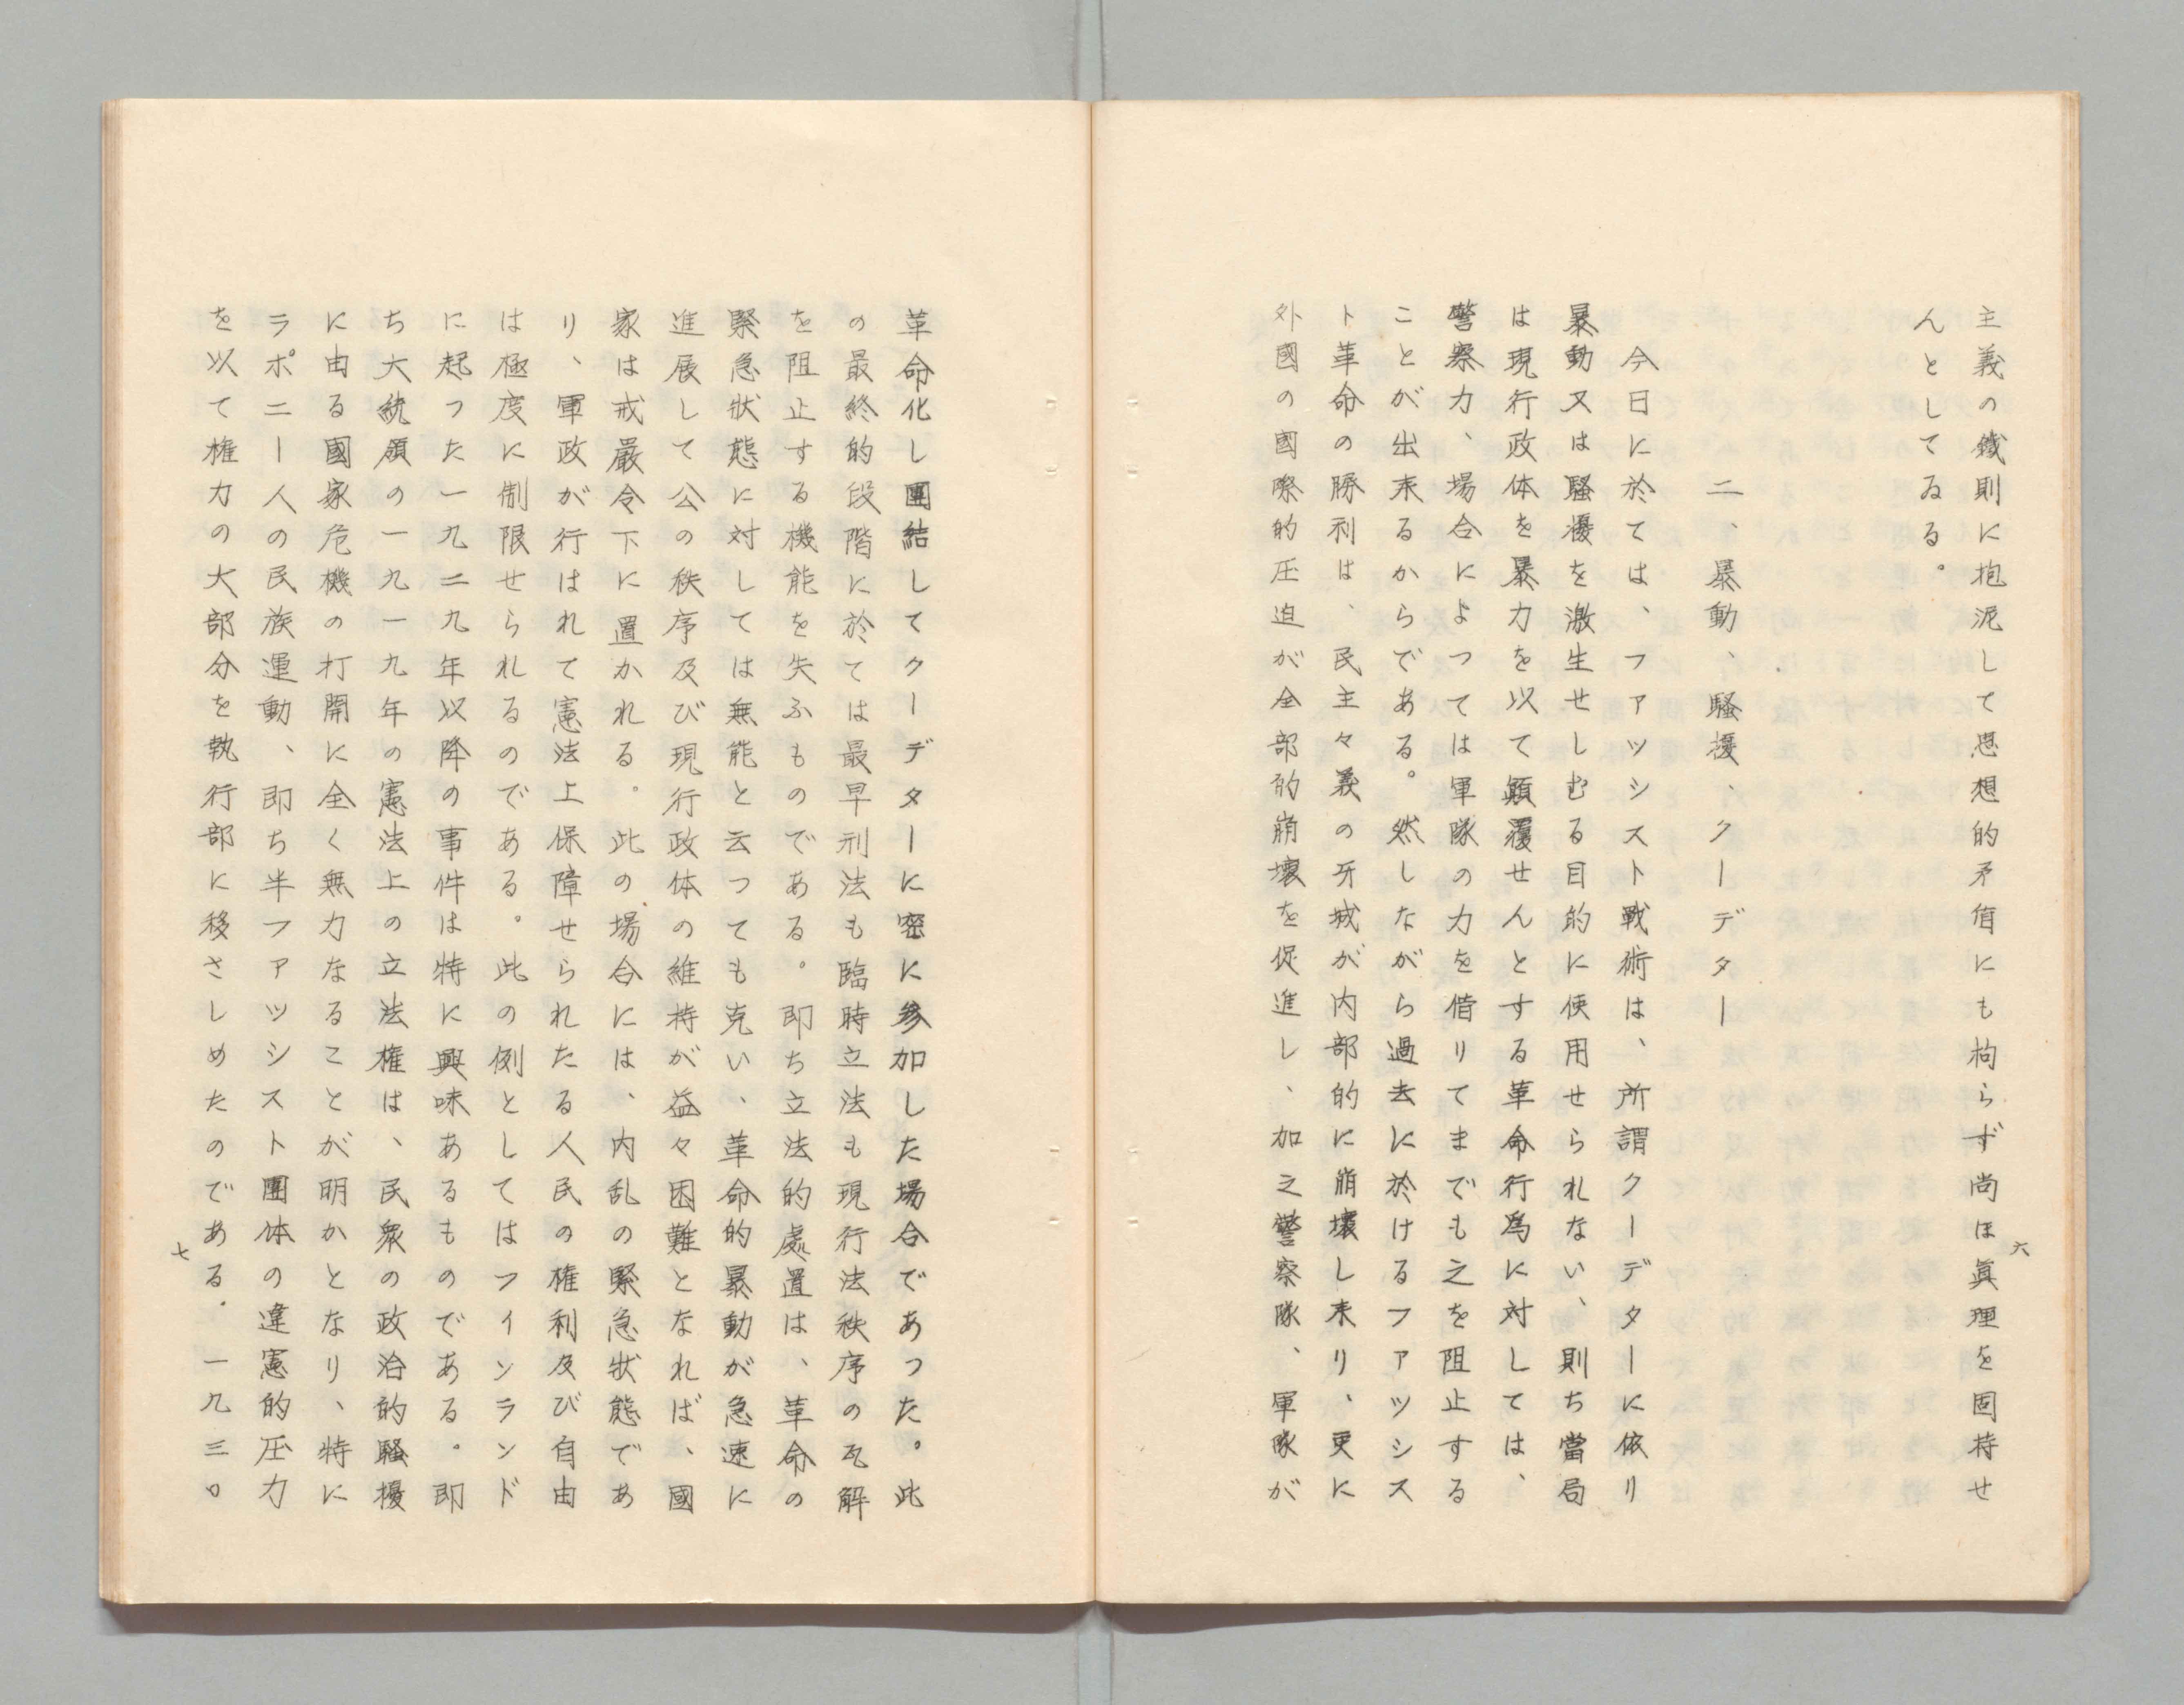 主義の鐵則に抱泥して思想的矛盾にも拘らず尚ほ眞理を固持せ
んとしてゐる。
二、暴動、騷擾、クーデター
今日に於ては、ファッシスト戰術は、所謂クーデターに依り
暴動又は騷擾を激生せしむる目的に使用せられない、則ち當局
は現行政体を暴力を以て顛覆せんとする革命行爲に対しては、
警察力、場合によつては軍隊の力を借りてまでも之を阻止する
ことが出来るからである。然しながら過去に於けるファッシス
ト革命の勝利は、民主々義の牙城が内部的に崩壞し来り、更に
外國の國際的圧迫が全部的崩壞を促進し、加之警察隊、軍隊が
六
革命化し團結してクーデターに密に参加した場合であつた。此
の最終的段階に於ては最早刑法も臨時立法も現行法秩序の瓦解
を阻止する機能を失ふものである。即ち立法的處置は、革命の
緊急狀態に対しては無能と云つても克い、革命的暴動が急速に
進展して公の秩序及び現行政体の維持が益々困難となれば、國
家は戒嚴令下に置かれる。此の場合には、内乱の緊急狀態であ
り、軍政が行はれて憲法上保障せられたる人民の権利及び自由
は極度に制限せられるのである。此の例としてはフインランド
に起つた一九二九年以降の事件は特に興味あるものである。即
ち大統領の一九一九年の憲法上の立法権は、民衆の政治的騷擾
に由る國家危機の打開に全く無力なることが明かとなり、特に
ラポニー人の民族運動、即ち半ファッシスト團体の違憲的圧力
を以て権力の大部分を執行部に移さしめたのである。一九三〇
七